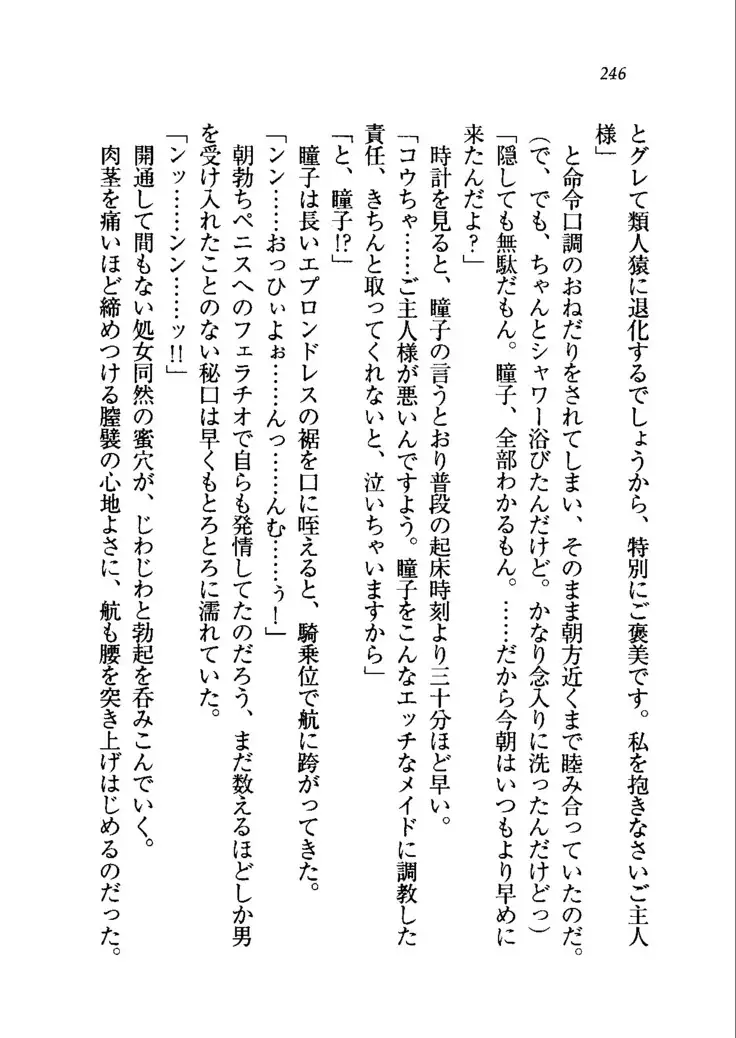 246
とグレて類人猿に退化するでしょうから、特別にご褒美です。私を抱きなさいご主人
様」
と命令口調のおねだりをされてしまい、そのまま朝方近くまで睦み合っていたのだ。
(で、でも、ちゃんとシャワー浴びたんだけど。かなり念入りに洗ったんだけどっ)
「隠しても無駄だもん。瞳子、全部わかるもん。……だから今朝はいつもより早めに
来たんだよ?」
時計を見ると、瞳子の言うとおり普段の起床時刻より三十分ほど早い。
「コウちゃ……ご主人様が悪いんですよう。瞳子をこんなエッチなメイドに調教した
責任、きちんと取ってくれないと、泣いちゃいますから」
「と、瞳子!?」
瞳子は長いエプロンドレスの裾を口に咥えると、騎乗位で航に跨がってきた。
「ンン……おっひぃよぉ……んっ……んむ……ぅ!」
朝勃ちペニスへのフェラチオで自らも発情してたのだろう、まだ数えるほどしか男
を受け入れたことのない秘口は早くもとろとろに濡れていた。
「ンッ……ンン……ッ!!」
開通して間もない処女同然の蜜穴が、じわじわと勃起を呑みこんでいく。
肉茎を痛いほど締めつける膣襞の心地よさに、航も腰を突き上げはじめるのだった。